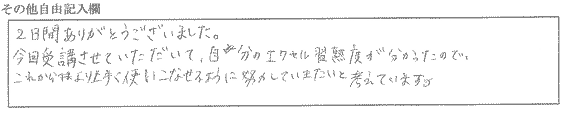 その他自由記入欄
2日間ありがとうございました。
今回受講させていただいて、自分のエクセル習熟度が分かったので、
これからはより上手く使いこなせるように努力していきたいと考えています。